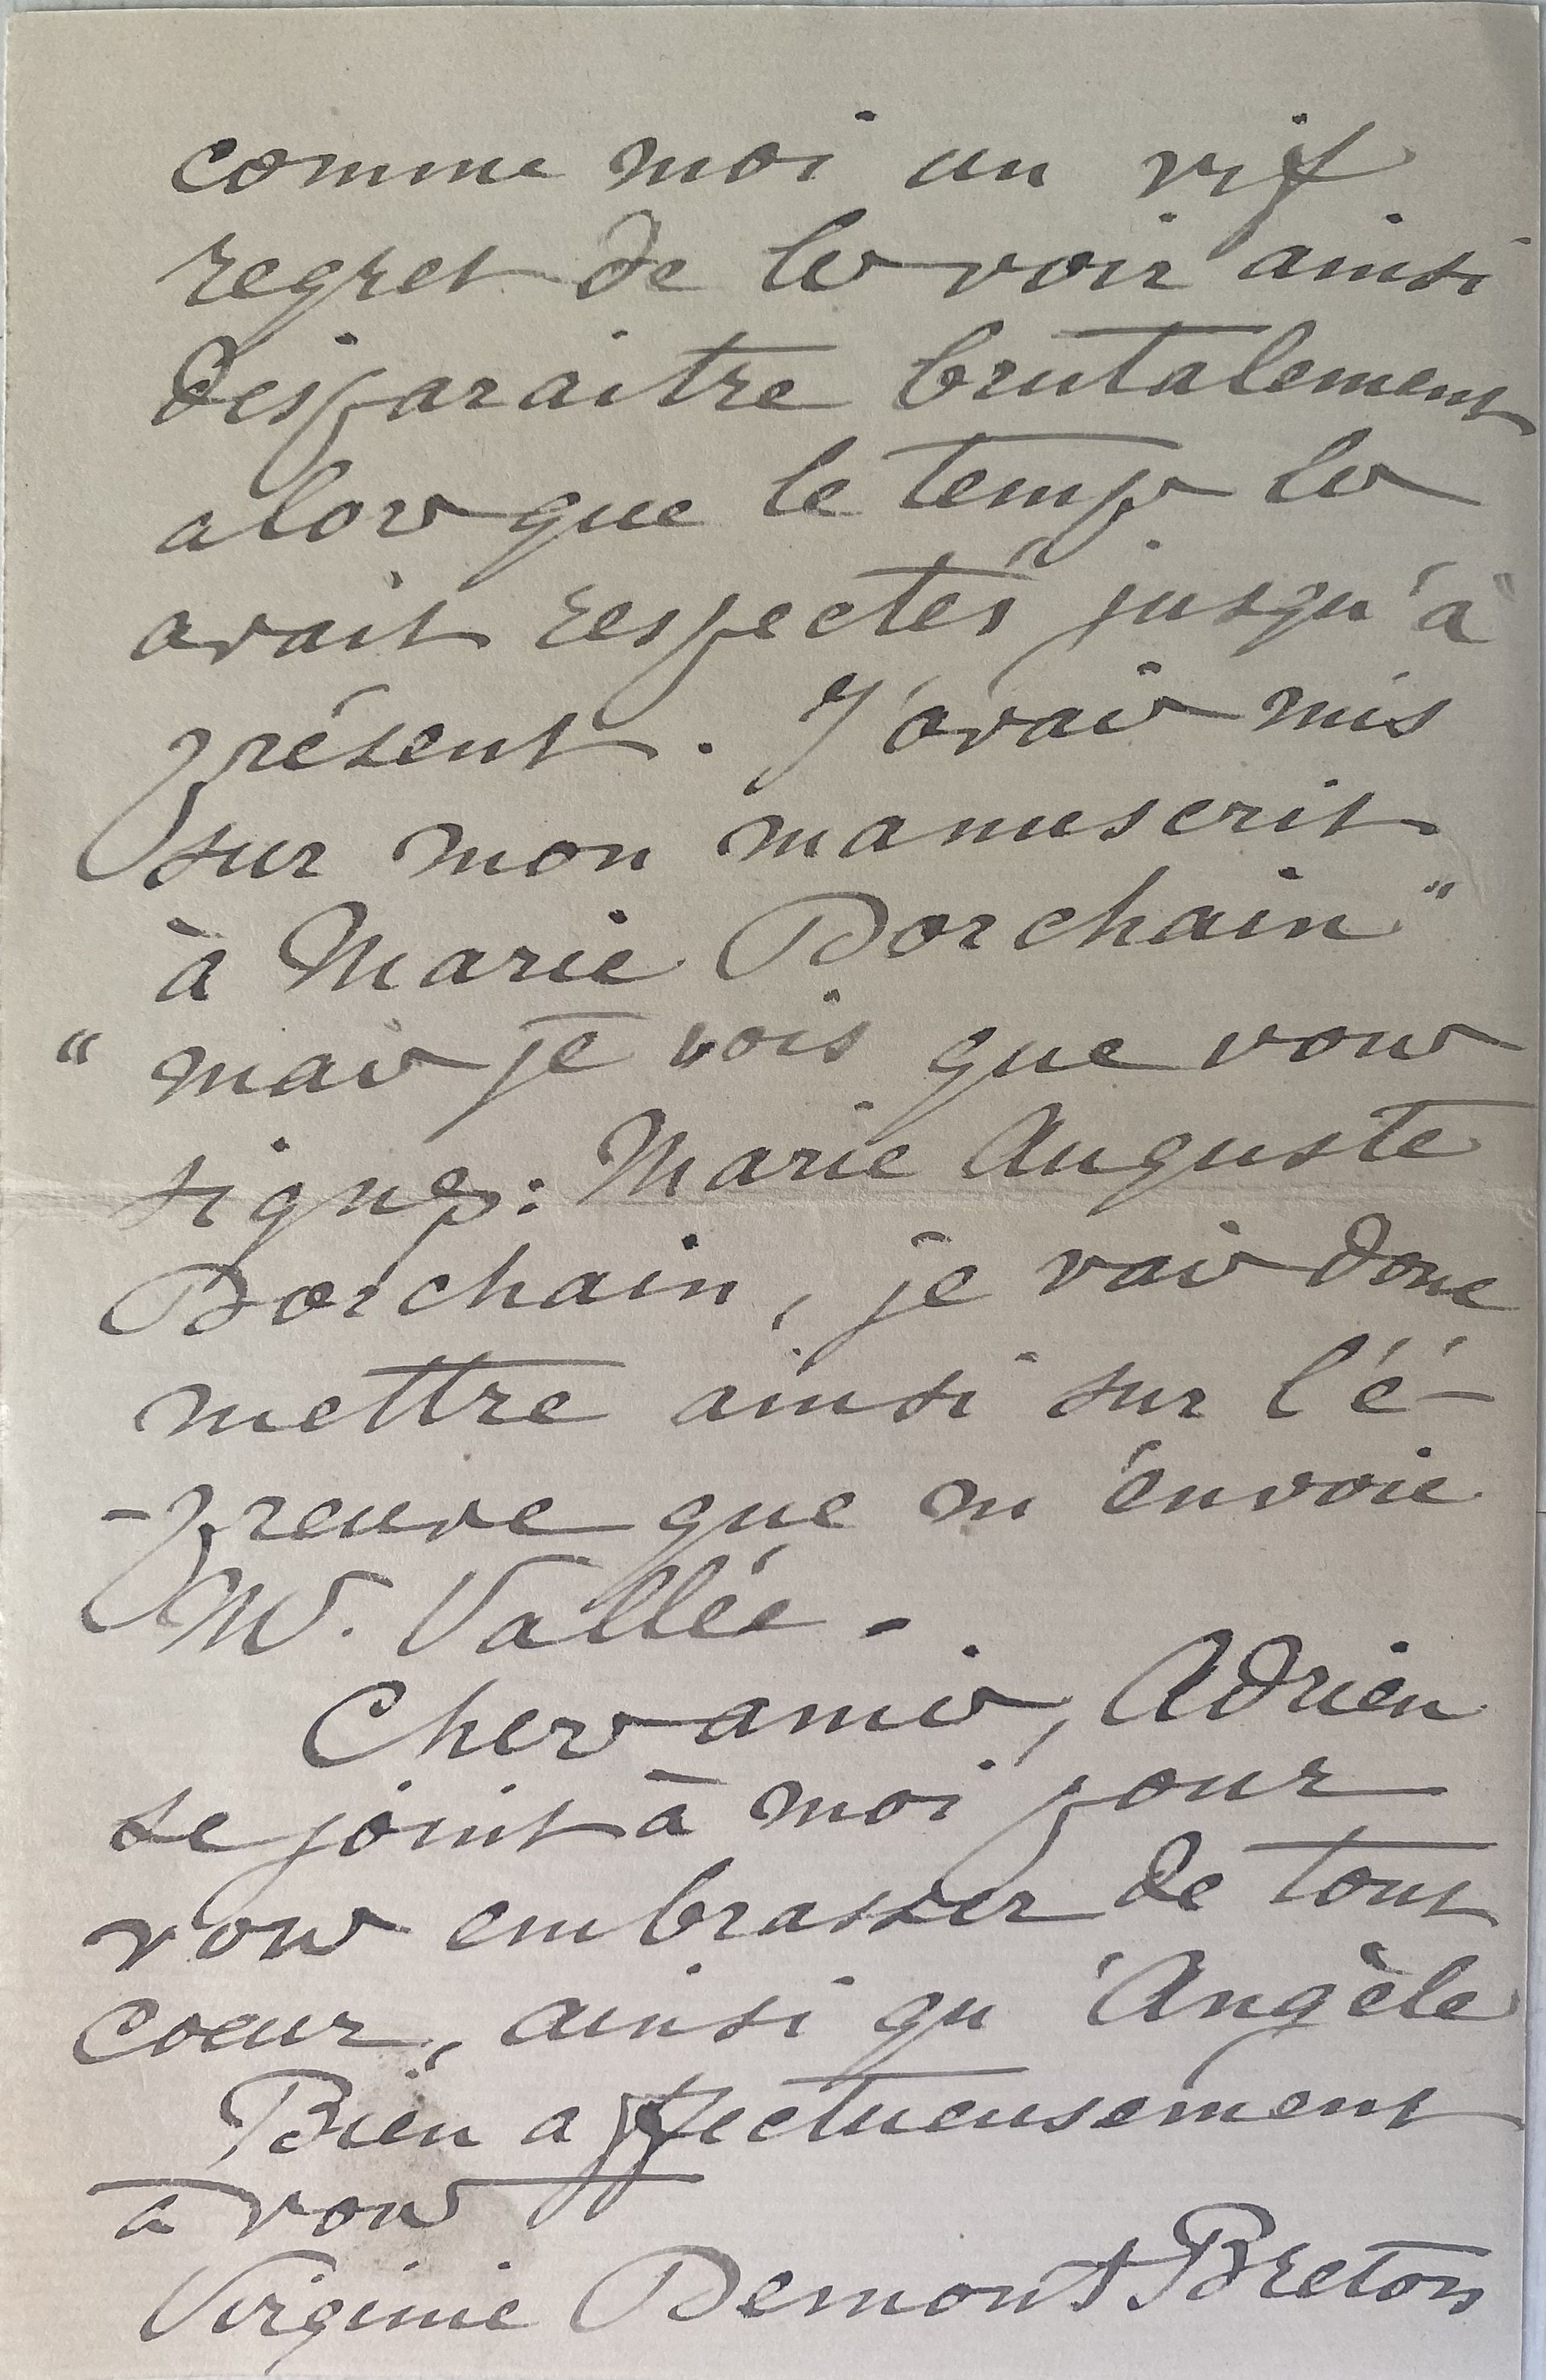 comme moi un vif
regret de les voir ainsi
disparaitre brutalement
alors que le temps les
avait respectés jusqu'à "
présent. J'avais mis
sur mon manuscrit
à Marie Dorchain "
" mais je vois que vous
signez : Marie Auguste
Dorchain, je vais donc
mettre ainsi sur l'é-
-preuve que m'envoie
Mr. Vallée -
Chers amis, Adrien
se joint à moi pour
vous embrasser de tout
coeur, ainsi qu'Angèle
Bien affectueusement
à vous
Virginie Demont Breton